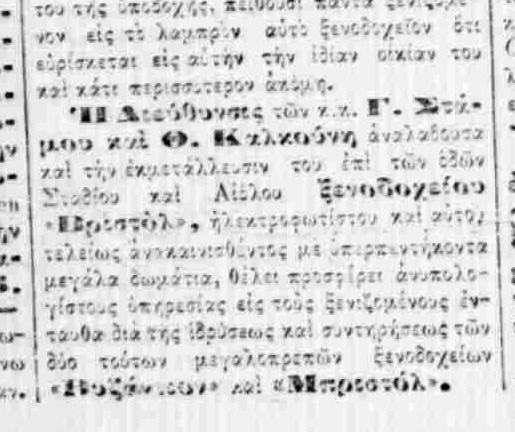 του της υποδοχής, πείθουσι πάντα ξενιζόμε-
νον εις το λαμπρόν αυτό ξενοδοχείον ότι
ευρίσκεται εις αυτήν την ιδίαν οικίαν του
και κάτι περισσότερον ακόμη.
Ἡ Διεύθυνσις τῶν κ.κ. Γ. Στά-
μου καὶ Θ. Καλκούνη ἀναλαβοῦσα
καὶ τὴν ἐκμετάλλευσιν τοῦ ἐπὶ τῶν ὁδῶν
Σταδίου καὶ Αἰόλου ξενοδοχείου
«Βρίστὸλ», ἠλεκτροφωτίστου καὶ αὐτοῦ
τελείως ἀνακαινισθέντος μὲ ὑπερπεντήκοντα
μεγάλα δωμάτια, θέλει προσφέρει ἀνυπολο-
γίστους ὑπηρεσίας εἰς τοὺς ξενιζομένους ἐν-
ταῦθα διὰ τῆς ἱδρύσεως καὶ συντηρήσεως τῶν
δύο τούτων μεγαλοπρεπῶν ξενοδοχείων
«Βυζάντιον» καὶ «Μπριστόλ».